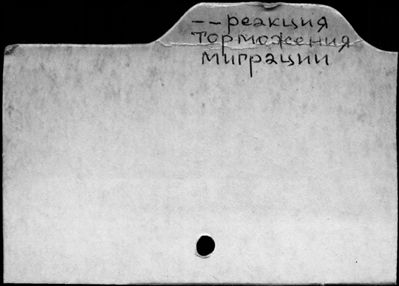 --реакция
торможения
миграции